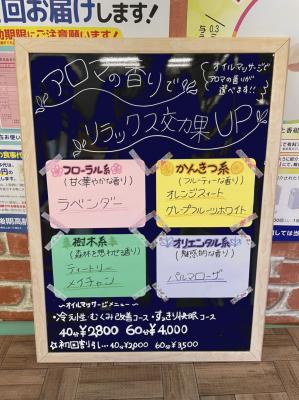 回お届けします!
効期限にご注意願います!
アロマの香りで
オイルマッサージで
アロマの香りが
選べます!!
リラックス効果UP
フローラル系
(甘く華やかな香り)
ラベンダー
かんきつ系
(フルーティーな香り)
オレンジスィート
グレープフルーツホワイト
樹木系
(森林を思わせる香り)
ティートリー
メイチャン
オリエンタル系
(魅惑的な香り)
パルマローザ
〜オイルマッサージメニュー〜
・冷え性・むくみ改善コース・すっきり快眠コース
40分¥2,800 60分¥4,000
☆初回割引…40分¥2,000 60分¥3,500